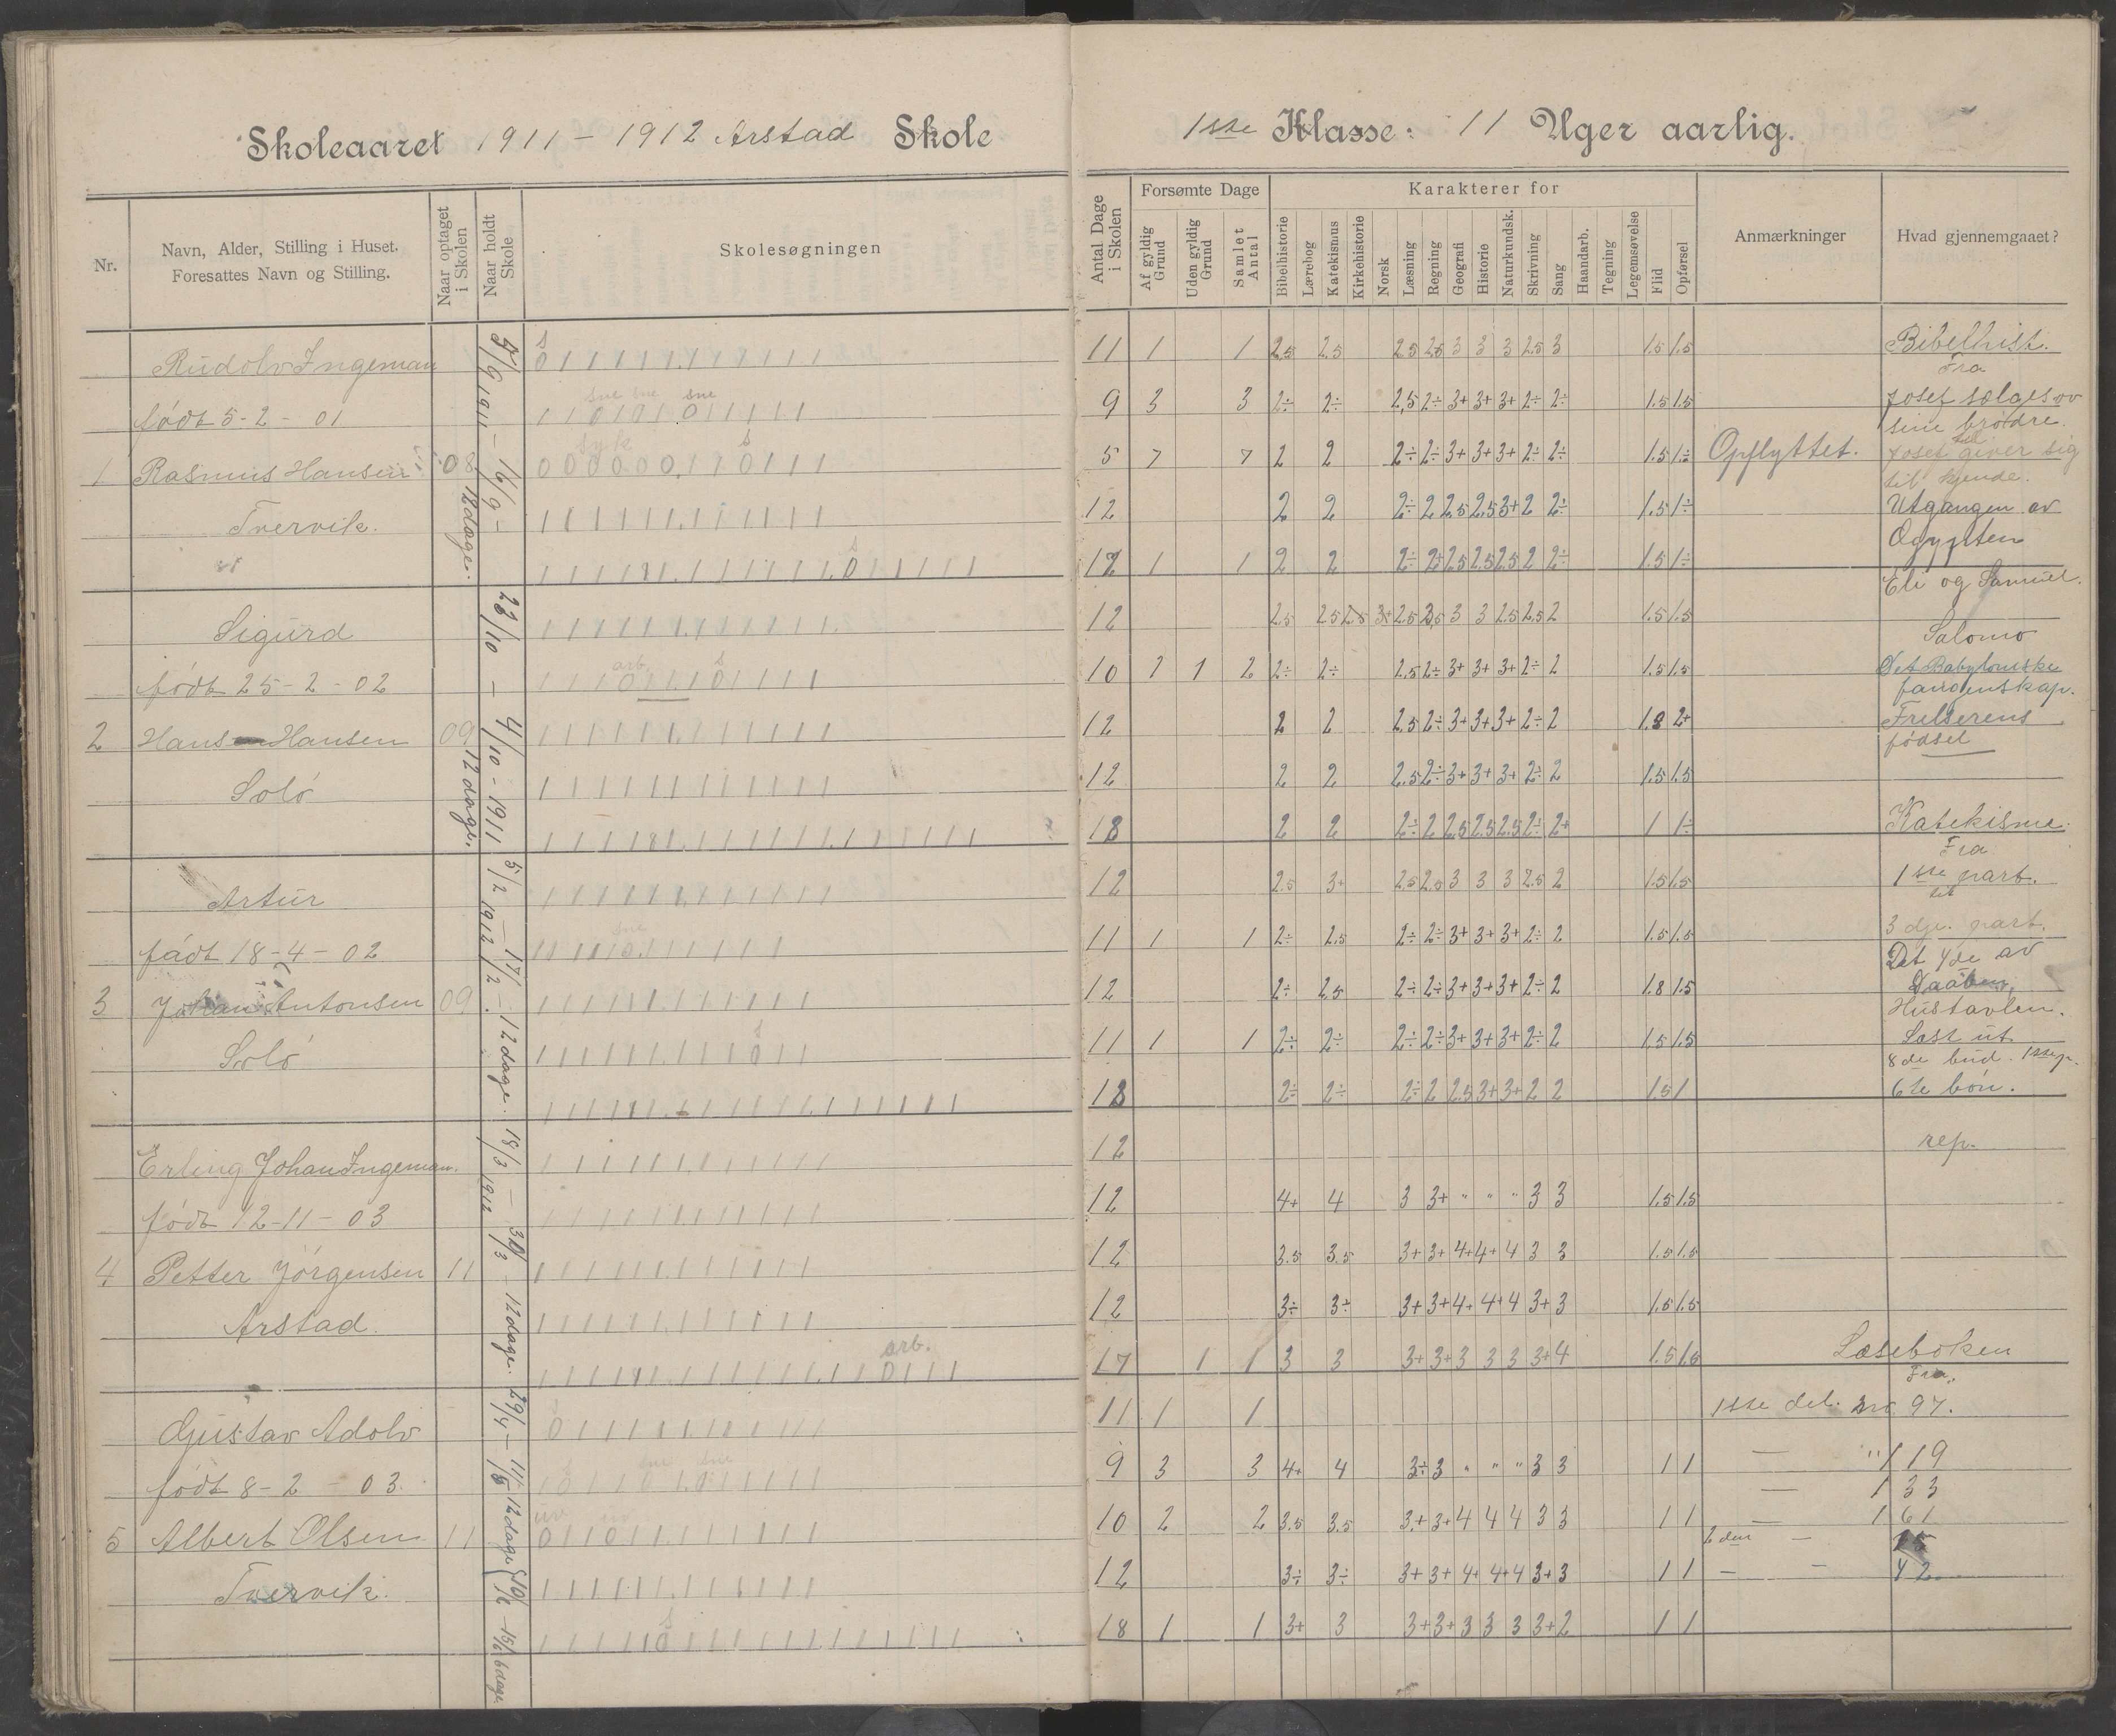 Skoleaaret 1911 - 1912 Arstad Skole
1sse Klasse: 11 Uger aarlig.
Nr.
Navn, Alder, Stilling i Huset.
Foresattes Navn og Stilling.
Naar optaget
i Skolen
Naar holdt
Skole
Skolesøgningen
Antal Dage
i Skolen
Forsømte Dage
Af gyldig
Grund
Uden gyldig
Grund
Samlet
Antal
Karakterer for
Bibelhistorie
Lærebog
Katekismus
Kirkehistorie
Norsk
Læsning
Regning
Geografi
Historie
Naturkundsk.
Skrivning
Sang
Haandarb.
Tegning
Legemsøvelse
Flid
Opførsel
Anmærkninger
Hvad gjennemgaaet?
Rudolv Ingeman
født 5-2-01
1 Rasmus Hansen 08
Tvervik.
Sigurd
født 25-2-02
2 Hans Hansen 09
Solø
Artur
født 18-4-02
3 Johan Antonsen 09
Solø
Erling Johan Ingeman.
født 12-11-03
4 Petter Jørgensen 11
Arstad
Gustav Adolv
født 8-2-03.
5 Albert Olsen 11
Tvervik.
5/9 1911 - 16/9 -
12 dage.
23/10 - 4/10 - 1911
12 dage.
5/2 - 17/2 - 12 dage.
1912
18/3 - 30/3 - 12 dage.
1912
29/4 - 11/5 12 dage
10/6 - 15/6 6 dage
s
sne sne sne
syk s
s
arb. s
sne
s
arb.
s
s sne sne
s
11 1 1 2.5 2.5 2.5 2.5 3 3 3 2.5 3 1.5 1.5
9 3 3 2÷ 2÷ 2,5 2÷ 3+ 3+ 3+ 2÷ 2÷ 1.5 1.5
5 7 7 2 2 2÷ 2÷ 3+ 3+ 3+ 2÷ 2÷ 1.5 1÷ Opflyttet.
12 2 2 2÷ 2 2.5 2.5 3+ 2 2÷ 1.5 1÷
17 1 1 2 2 2÷ 2+ 2.5 2.5 2.5 2 2÷ 1.5 1÷
12 2.5 2.5 2.5 3 3 2.5 2.5 2 1.5 1.5
10 1 1 2 2÷ 2÷ 2.5 2÷ 3+ 3+ 3+ 2÷ 2 1.5 1.5
12 2 2 2.5 2÷ 3+ 3+ 3+ 2÷ 2 1.8 2+
12 2 2 2.5 2÷ 3+ 3+ 3+ 2÷ 2 1.5 1.5
18 2 2 2÷ 2 2.5 2.5 2.5 2÷ 2+ 1 1÷
12 2.5 3+ 2.5 2.5 3 3 3 2.5 2 1.5 1.5
11 1 1 2÷ 2.5 2÷ 2÷ 3+ 3+ 3+ 2÷ 2 1.5 1.5
12 2÷ 2.5 2÷ 2÷ 3+ 3+ 3+ 2÷ 2 1.8 1.5
11 1 1 2÷ 2÷ 2÷ 2÷ 3+ 3+ 3+ 2÷ 2 1.5 1.5
18 2÷ 2÷ 2÷ 2 2.5 3+ 3+ 2 2 1.5 1
12
12 4+ 4 3 3+ " " " 3 3 1.5 1.5
12 3.5 3.5 3+ 3+ 4+ 4+ 4 3 3 1.5 1.5
12 3÷ 3÷ 3+ 3+ 4+ 4+ 4 3+ 3 1.5 1.5
17 1 1 3 3 3+ 3+ 3 3 3 3+ 4 1.5 1.5
11 1 1
9 3 3 4+ 4 3÷ 3 " " " 3 3 1 1
10 2 2 3.5 3.5 3+ 3+ 4 4 4 3 3 1 1
12 3÷ 3÷ 3+ 3+ 4+ 4+ 4 3+ 3 1 1
18 1 1 3+ 3 3+ 3+ 3 3 3 3+ 2 1 1
Bibelhist.
Fra
Josef sælges av
sine brødre.
til
Josef giver sig
til kjende.
Utgangen av
Ægypten
Eli og Samuel.
Salomo
Det Babylonske
fangenskap.
Frelserens
fødsel
Katekisme.
Fra
1sse part.
til
3 dje. part.
Det 4de av
Daaben.
Hustavlen.
Læst ut
8de bud. 1sse p.
6te bøn.
rep.
Læseboken
Fra.
1sse del. nr. 97.
— " 119
— 133
— 161
2den —
— — 42